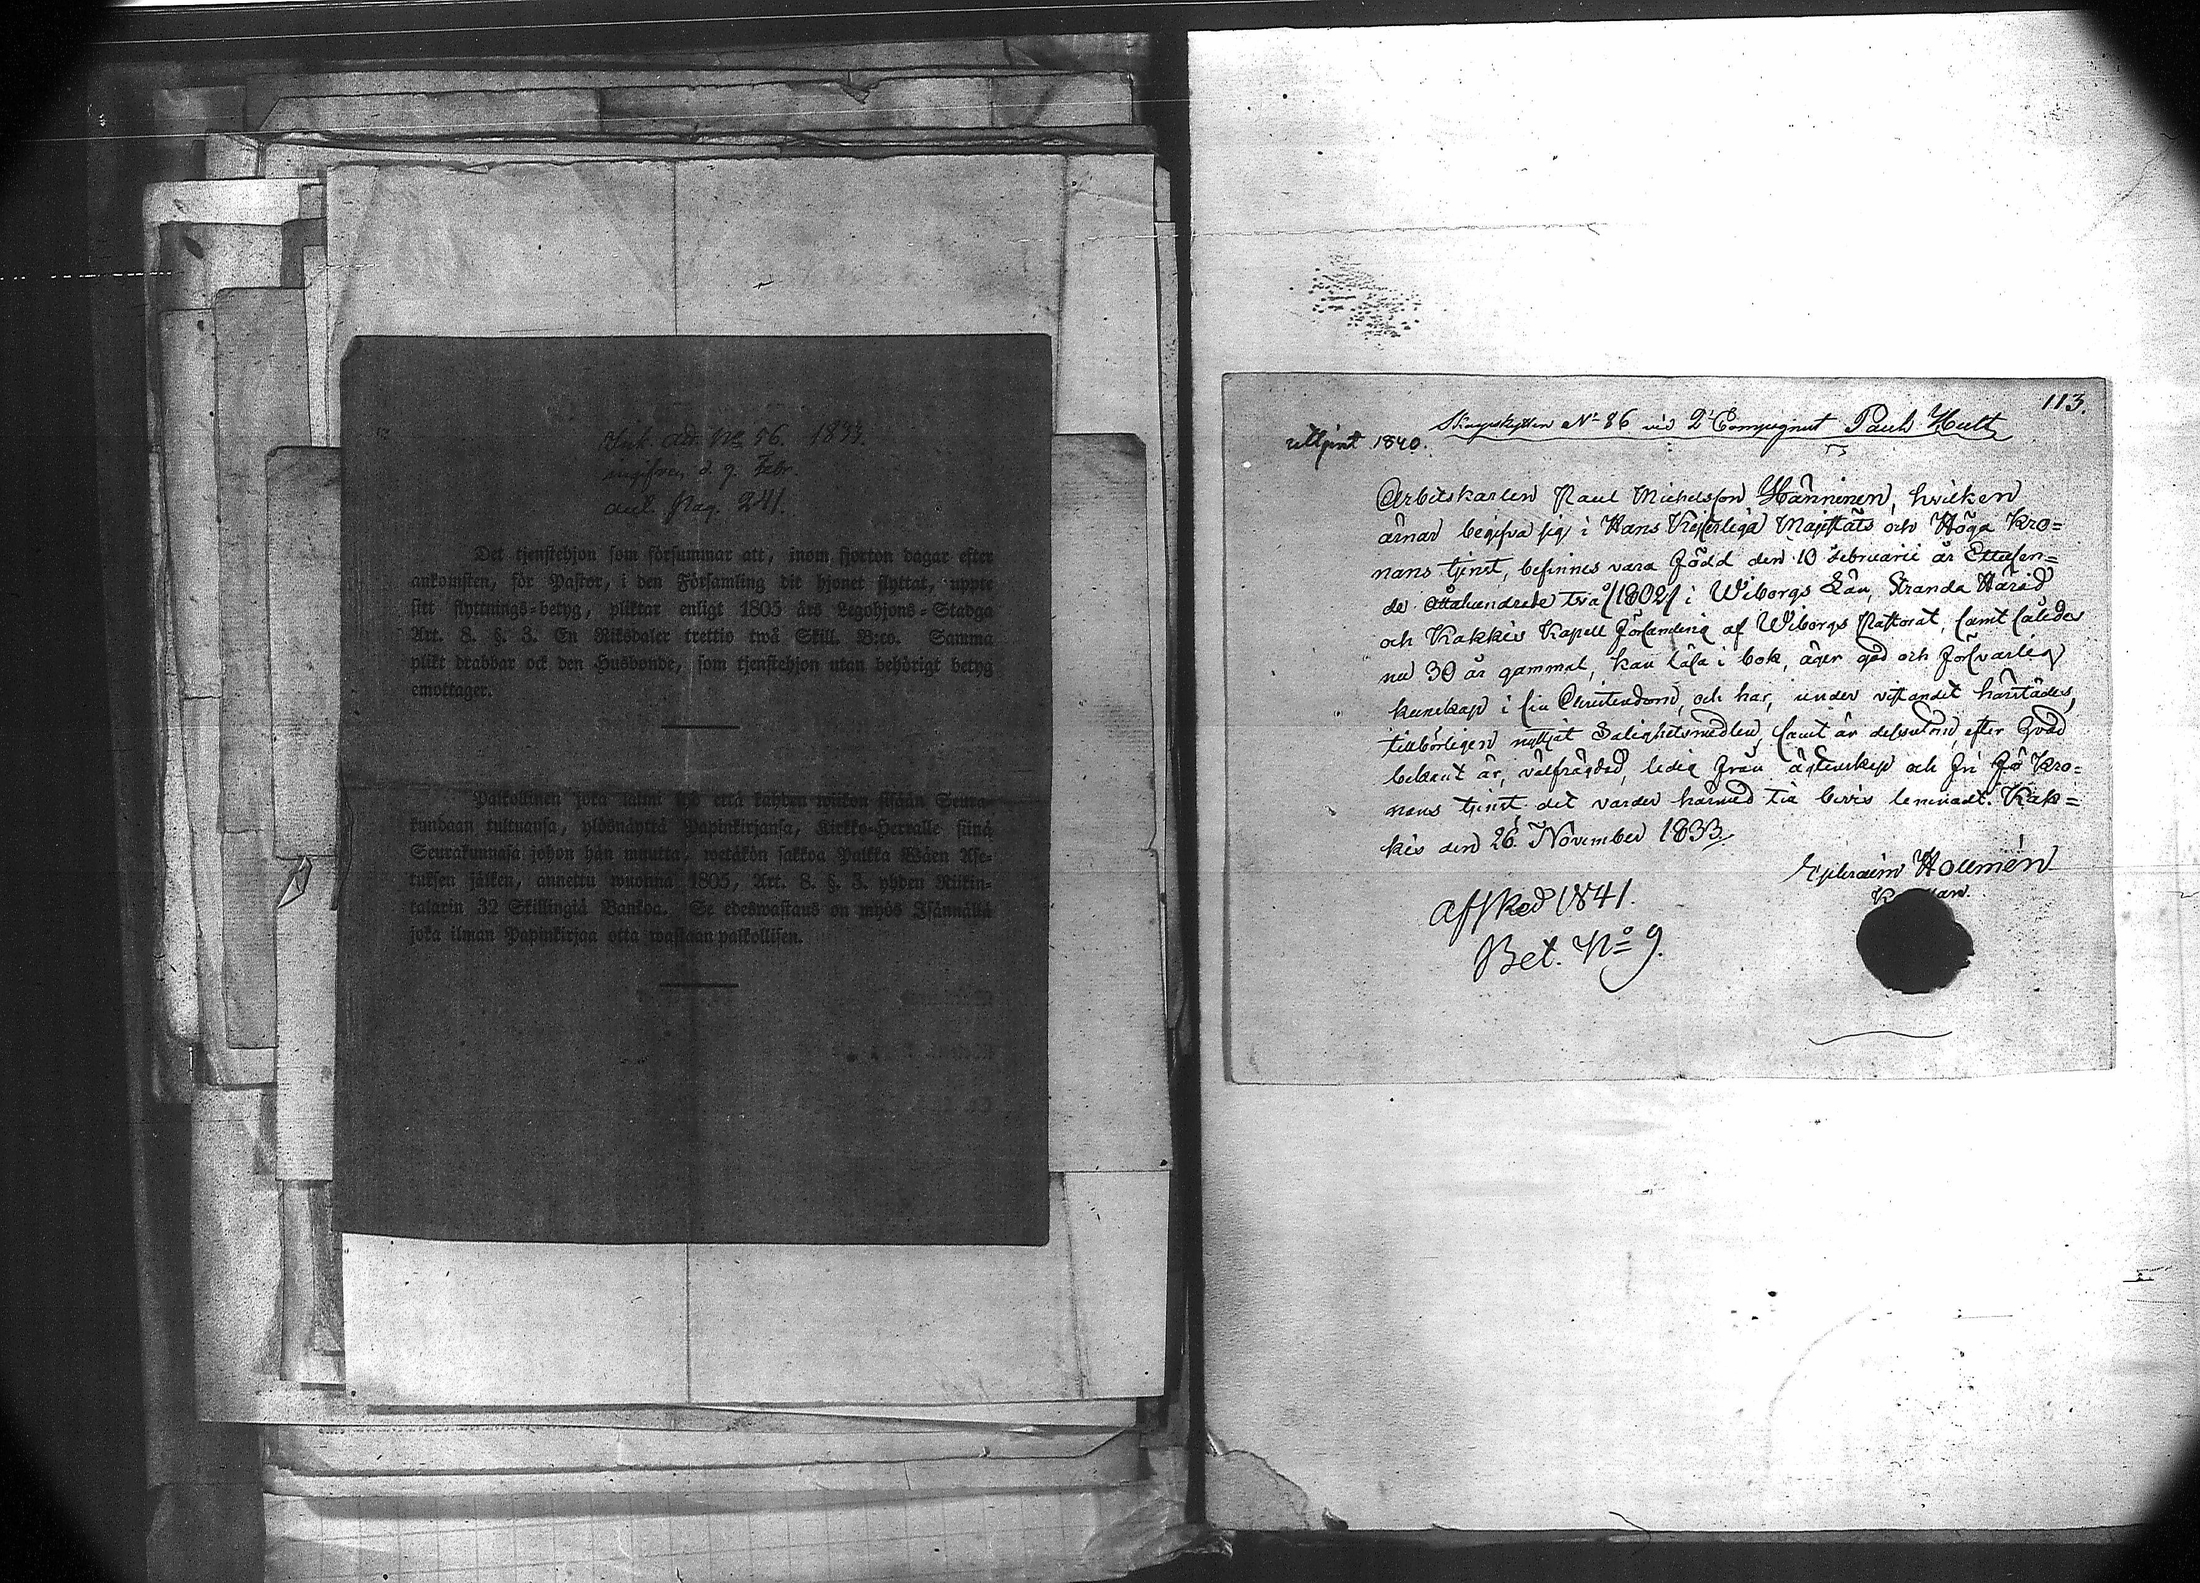 Ank. att. No 56. 1833.
ingifven d. 9. Febr.
anl. Pag. 241.
Det tjenstehjon som försummar att, inom fjorton dagar efter
ankomsten, för Pastor, i den Församling dit hjonet flyttat, uppte
sitt flyttnings-betyg, pliktar enligt 1805 års Legohjons-Stadga
Art. 8. §. 3. En Riksdaler trettio twå Skill. B:co. Samma
plikt drabbar ock den Husbonde, som tjenstehjon utan behörigt betyg
emottager.
Palkollinen joka laimi lyö että kahden wiikon sisään Seura-
kundaan tultuansa, ylösnäyttä Papinkirjansa, Kirkko-Herralle siinä
Seurakunnasa johon hän muutta, wetäkön sakkoa Palkka Wäen Ase-
tuksen jälken, annettu wuonna 1805, Art. 8. §. 3. yhden Riikin-
talarin 32 Skillingiä Bankoa. Se edeswastaus on myös Isännällä
joka ilman Papinkirjaa otta wastaan palkollisen.
113.
Skarpskytten No 86 vid 2 Compagniet Pauli Hult
uttjent 1840.
Arbetskarlen Paul Michelsson Hänninen, hvilken
ärnar begifva sig i Hans Kejserliga Majestäts och Höga Kro=
nans tjenst, befinnes vara född den 10 Februarii år Ettusen=
de åttahundrade två /1802/ i Wiborgs Län, Stranda Härad
och Kakkis Kapell Församling af Wiborgs Pastorat, samt således
nu 30 år gammal, kan läsa i bok, äger god och försvarlig
kunskap i sin Christendom, och har, under vistandet härstädes,
tillbörligen nyttjat Salighetsmedlen, samt är dessutom, efter hvad
bekant är, välfrägdad, ledig från ägtenskap och fri för Kro=
nans tjenst, det varder härmed till bevis lemnadt. Kak=
kis den 26 November 1833.
Ephraim Holmén
Affsked 1841.
Bet. No 9.